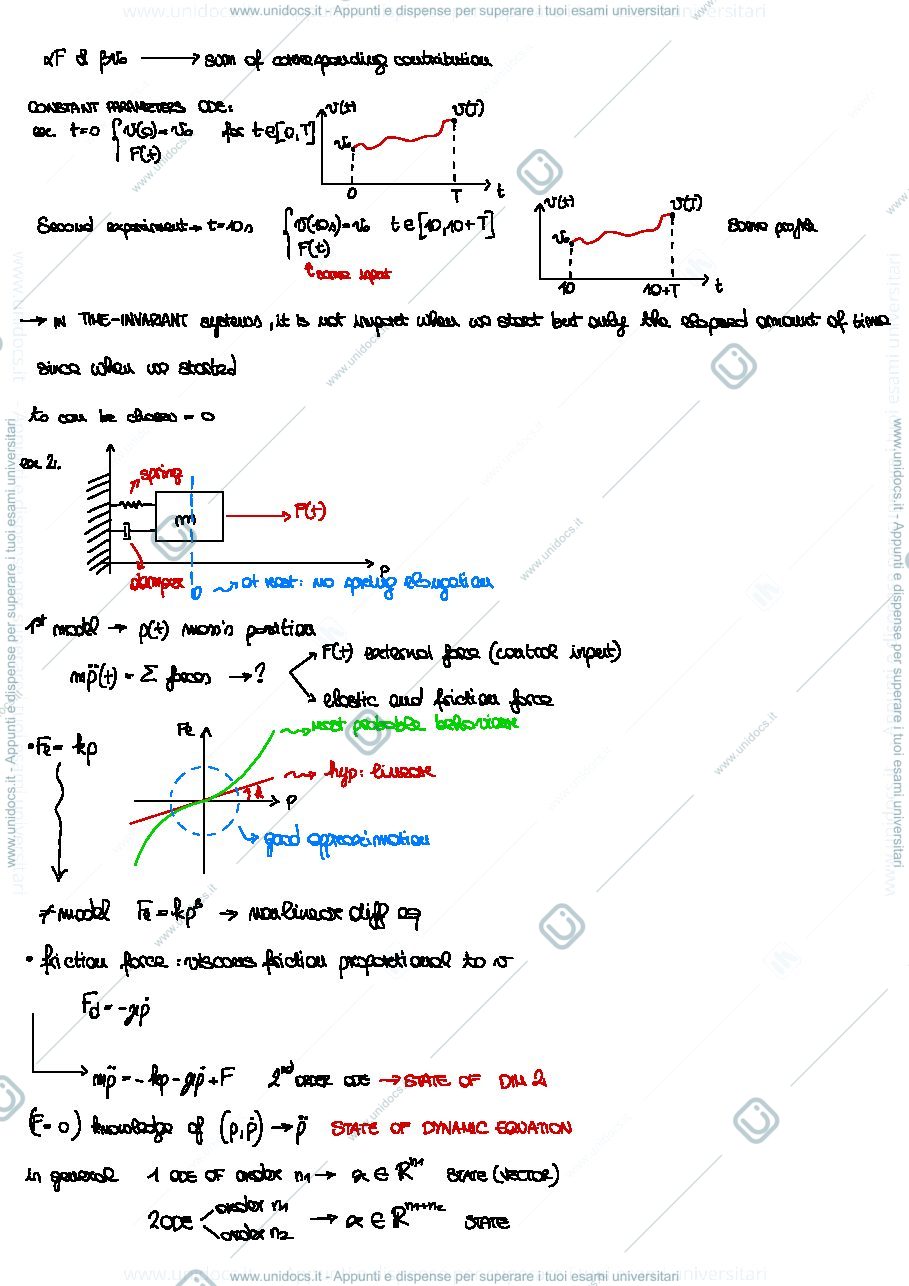 www.unidocs.it - Appunti e dispense per superare i tuoi esami universitari
αF & βv₀ → sum of corresponding contribution
CONSTANT PARAMETERS ODE:
ex. t=0 { v(0)=v₀ for t∈[0,T]
F(t)
v(t) v(T)
v₀
0 T t
Second experiment → t=10s { v(10s)=v₀ t∈[10,10+T]
F(t)
same input
v(t) v(T)
v₀
10 10+T t
same profile
→ IN TIME-INVARIANT systems, it is not import when we start but only the elapsed amount of time
since when we started
t₀ can be chosen = 0
ex 2.
spring
m
F(t)
damper
p
0 at rest: no spring elongation
1st model → p(t) mass's position
mp̈(t) = Σ forces → ?
F(t) external force (control input)
elastic and friction force
• Fe = kp
Fe
most probable behaviour
hyp: linear
k
p
good approximation
≠ model Fe = kp³ → nonlinear diff eq
• friction force: viscous friction proportional to v
Fd = -μṗ
mp̈ = -kp - μṗ + F 2nd ORDER ODE → STATE OF DIM 2
(F=0) knowledge of (p,ṗ) → p̈ STATE OF DYNAMIC EQUATION
in general 1 ODE OF order n₁ → x ∈ ℝⁿ¹ STATE (VECTOR)
2 ODE order n₁
order n₂ → x ∈ ℝⁿ¹⁺ⁿ² STATE
www.unidocs.it - Appunti e dispense per superare i tuoi esami universitari